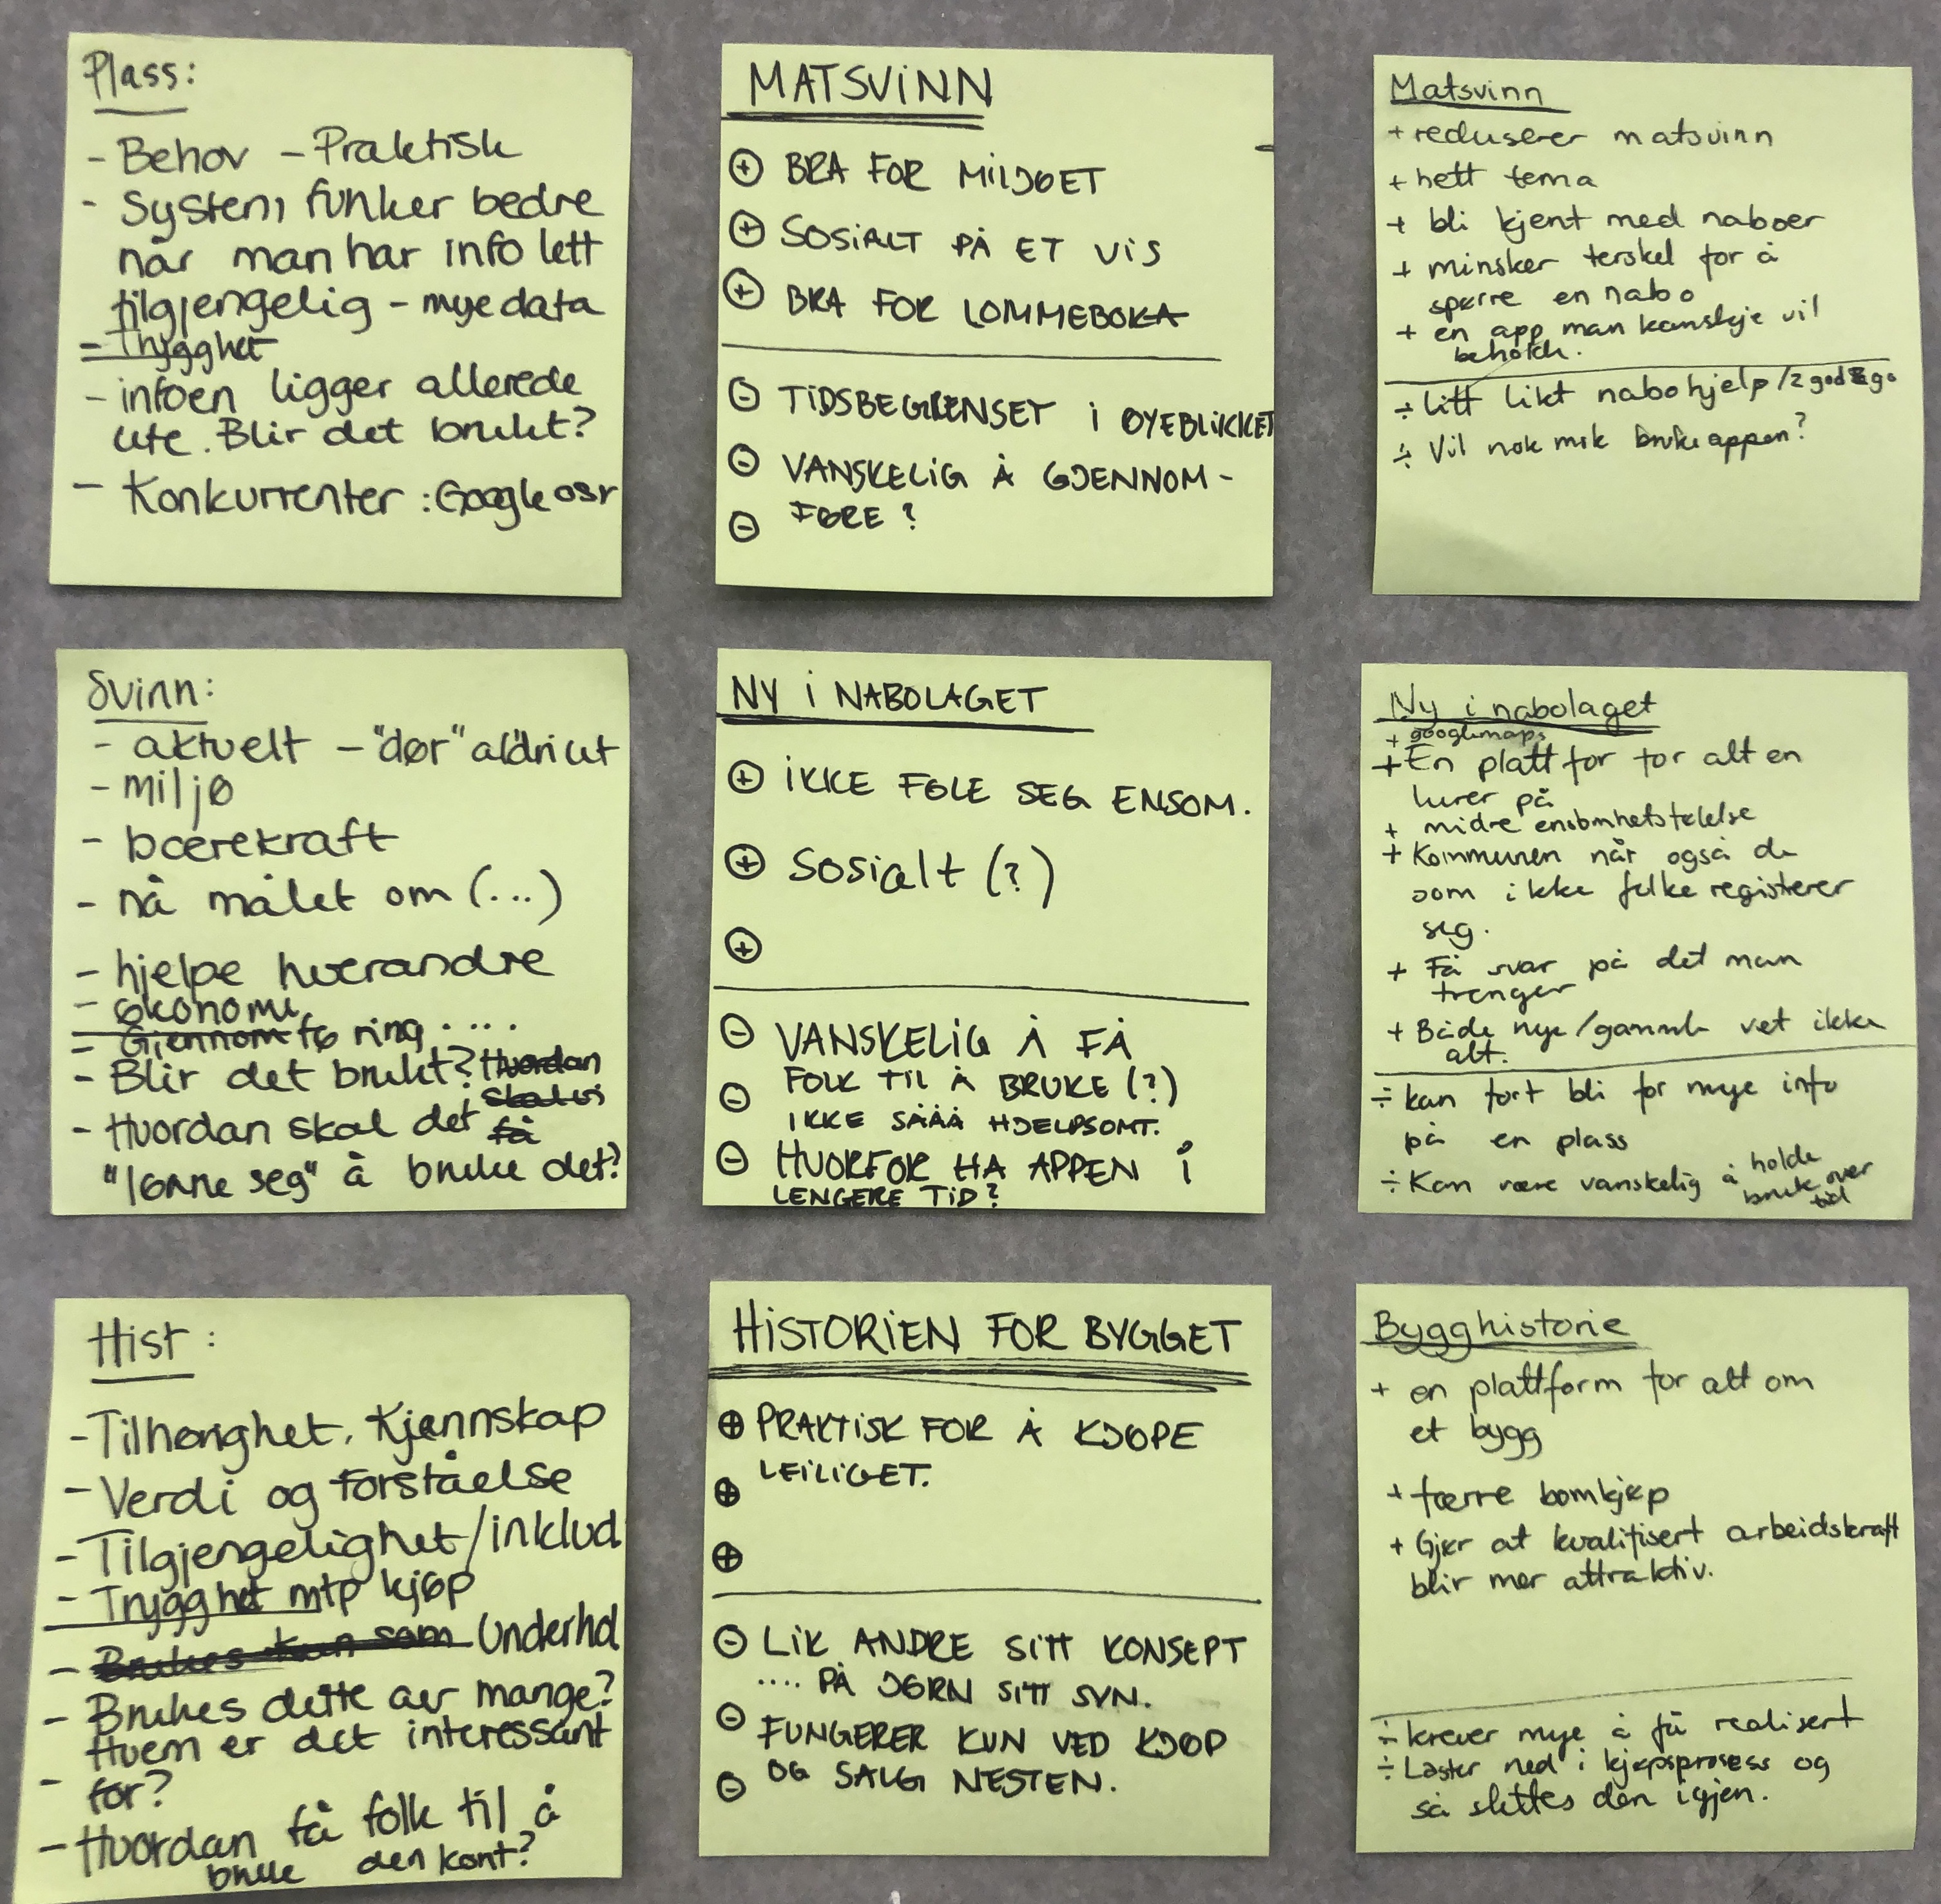 Plass:
- Behov - Praktisk
- System funker bedre
når man har info lett
tilgjengelig - mye data
- Trygghet
- infoen ligger allerede
ute. Blir det brukt?
- Konkurrenter : Google osv
MATSVINN
+ BRA FOR MILJØET
+ SOSIALT PÅ ET VIS
+ BRA FOR LOMMEBOKA
- TIDSBEGRENSET I ØYEBLIKKET
- VANSKELIG Å GJENNOM-
- FØRE?
Matsvinn
+ reduserer matsvinn
+ hett tema
+ bli kjent med naboer
+ minsker terskel for å
spørre en nabo
+ en app man kanskje vil
beholde.
÷ litt likt nabohjelp/2good2go
÷ Vil nok msk bruke appen?
Svinn:
- aktuelt - "dør" aldri ut
- miljø
- bærekraft
- nå målet om (...)
- hjelpe hverandre
- økonomi
- Gjennomføring....
- Blir det brukt? Hvordan
skal vi
- Hvordan skal det få
"lønne seg" å bruke det?
NY I NABOLAGET
+ IKKE FØLE SEG ENSOM.
+ Sosialt (?)
+
- VANSKELIG Å FÅ
FOLK TIL Å BRUKE (?)
- IKKE SÅÅÅ HJELPSOMT.
- HVORFOR HA APPEN I
LENGERE TID?
Ny i nabolaget
+ googlemaps
+ En plattfor for alt en
lurer på
+ midre ensomhetsfølelse
+ Kommunen når også de
som ikke folkeregisterer
seg.
+ Få svar på det man
trenger
+ Både nye/gamle vet ikke
alt.
÷ kan fort bli for mye info
på en plass
÷ Kan være vanskelig å holde
bruk over
tid
Hist :
- Tilhørighet, Kjennskap
- Verdi og forståelse
- Tilgjengelighet/inklud
- Trygghet mtp kjøp
- Brukes kun som Underhol
- Brukes dette av mange?
Hvem er det interessant
- for?
- Hvordan få folk til å
bruke den kont?
HISTORIEN FOR BYGGET
+ PRAKTISK FOR Å KJØPE
LEILIGET.
+
+
- LIK ANDRE SITT KONSEPT
.... PÅ JØRN SITT SYN.
- FUNGERER KUN VED KJØP
OG SALG NESTEN.
-
Bygghistorie
+ en plattform for alt om
et bygg
+ færre bomkjøp
+ Gjør at kvalifisert arbeidskraft
blir mer attraktiv.
÷ krever mye å få realisert
÷ Laster ned i kjøpsprosess og
så slettes den igjen.